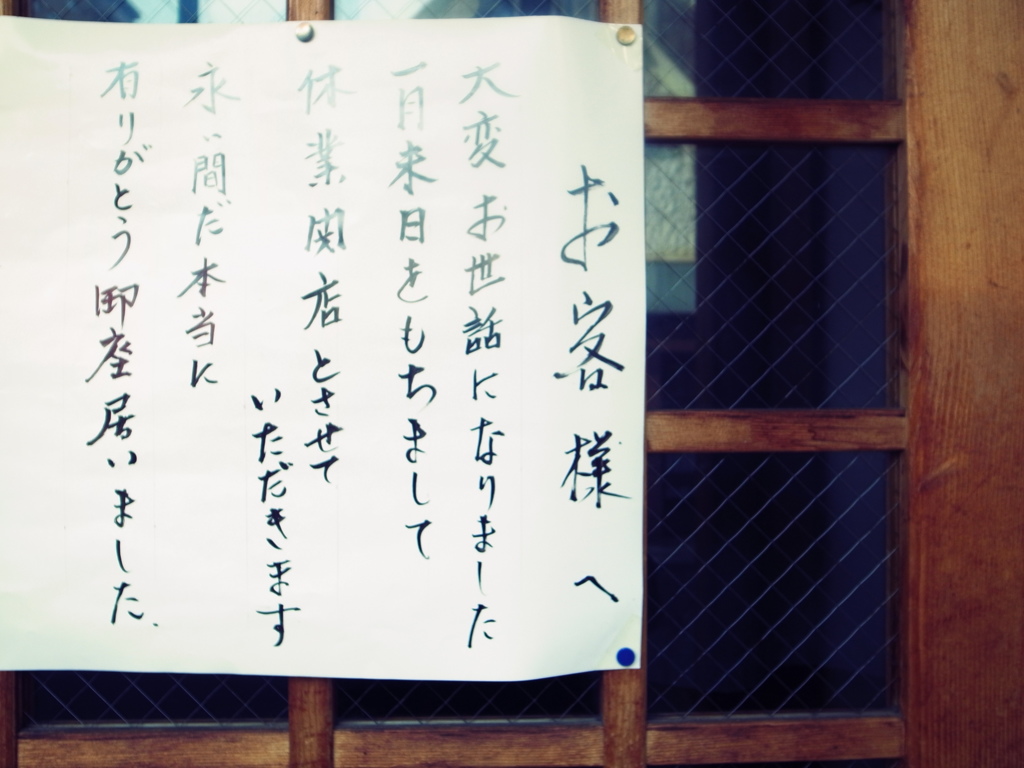 お客様へ
大変お世話になりました
一月末日をもちまして
休業閉店とさせて
いただきます
永い間だ本当に
有りがとう御座居いました.